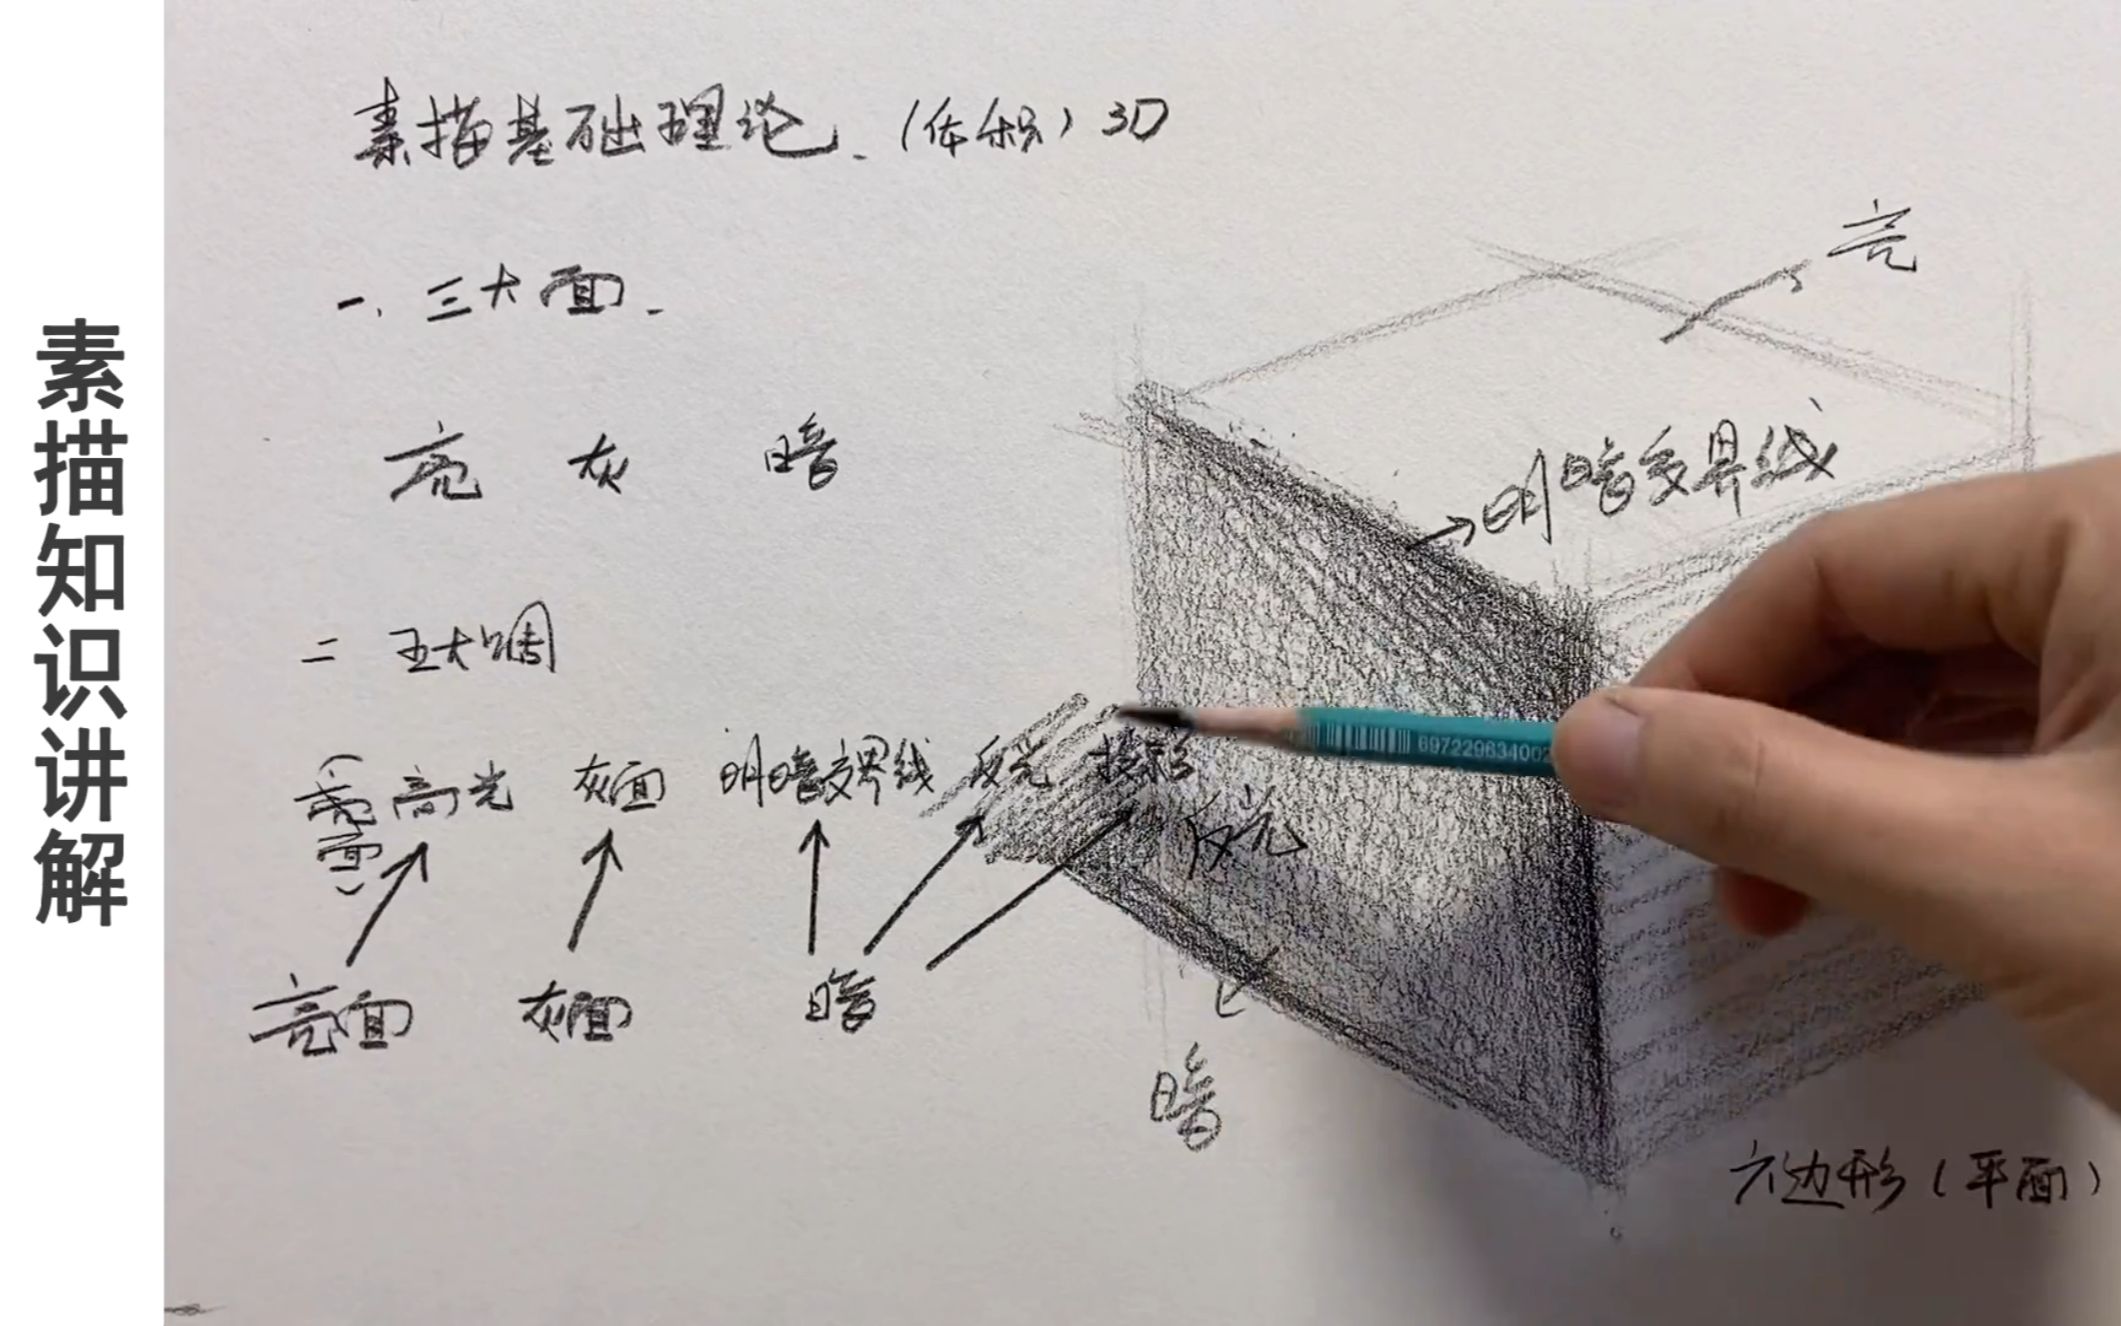 素描知识讲解
素描基础理论.（体积）3D
一、三大面.
亮 灰 暗
二 五大调
（亮面）高光 灰面 明暗交界线 反光 投影
亮面 灰面 暗
亮
→明暗交界线
6972296340
反光
暗
六边形（平面）